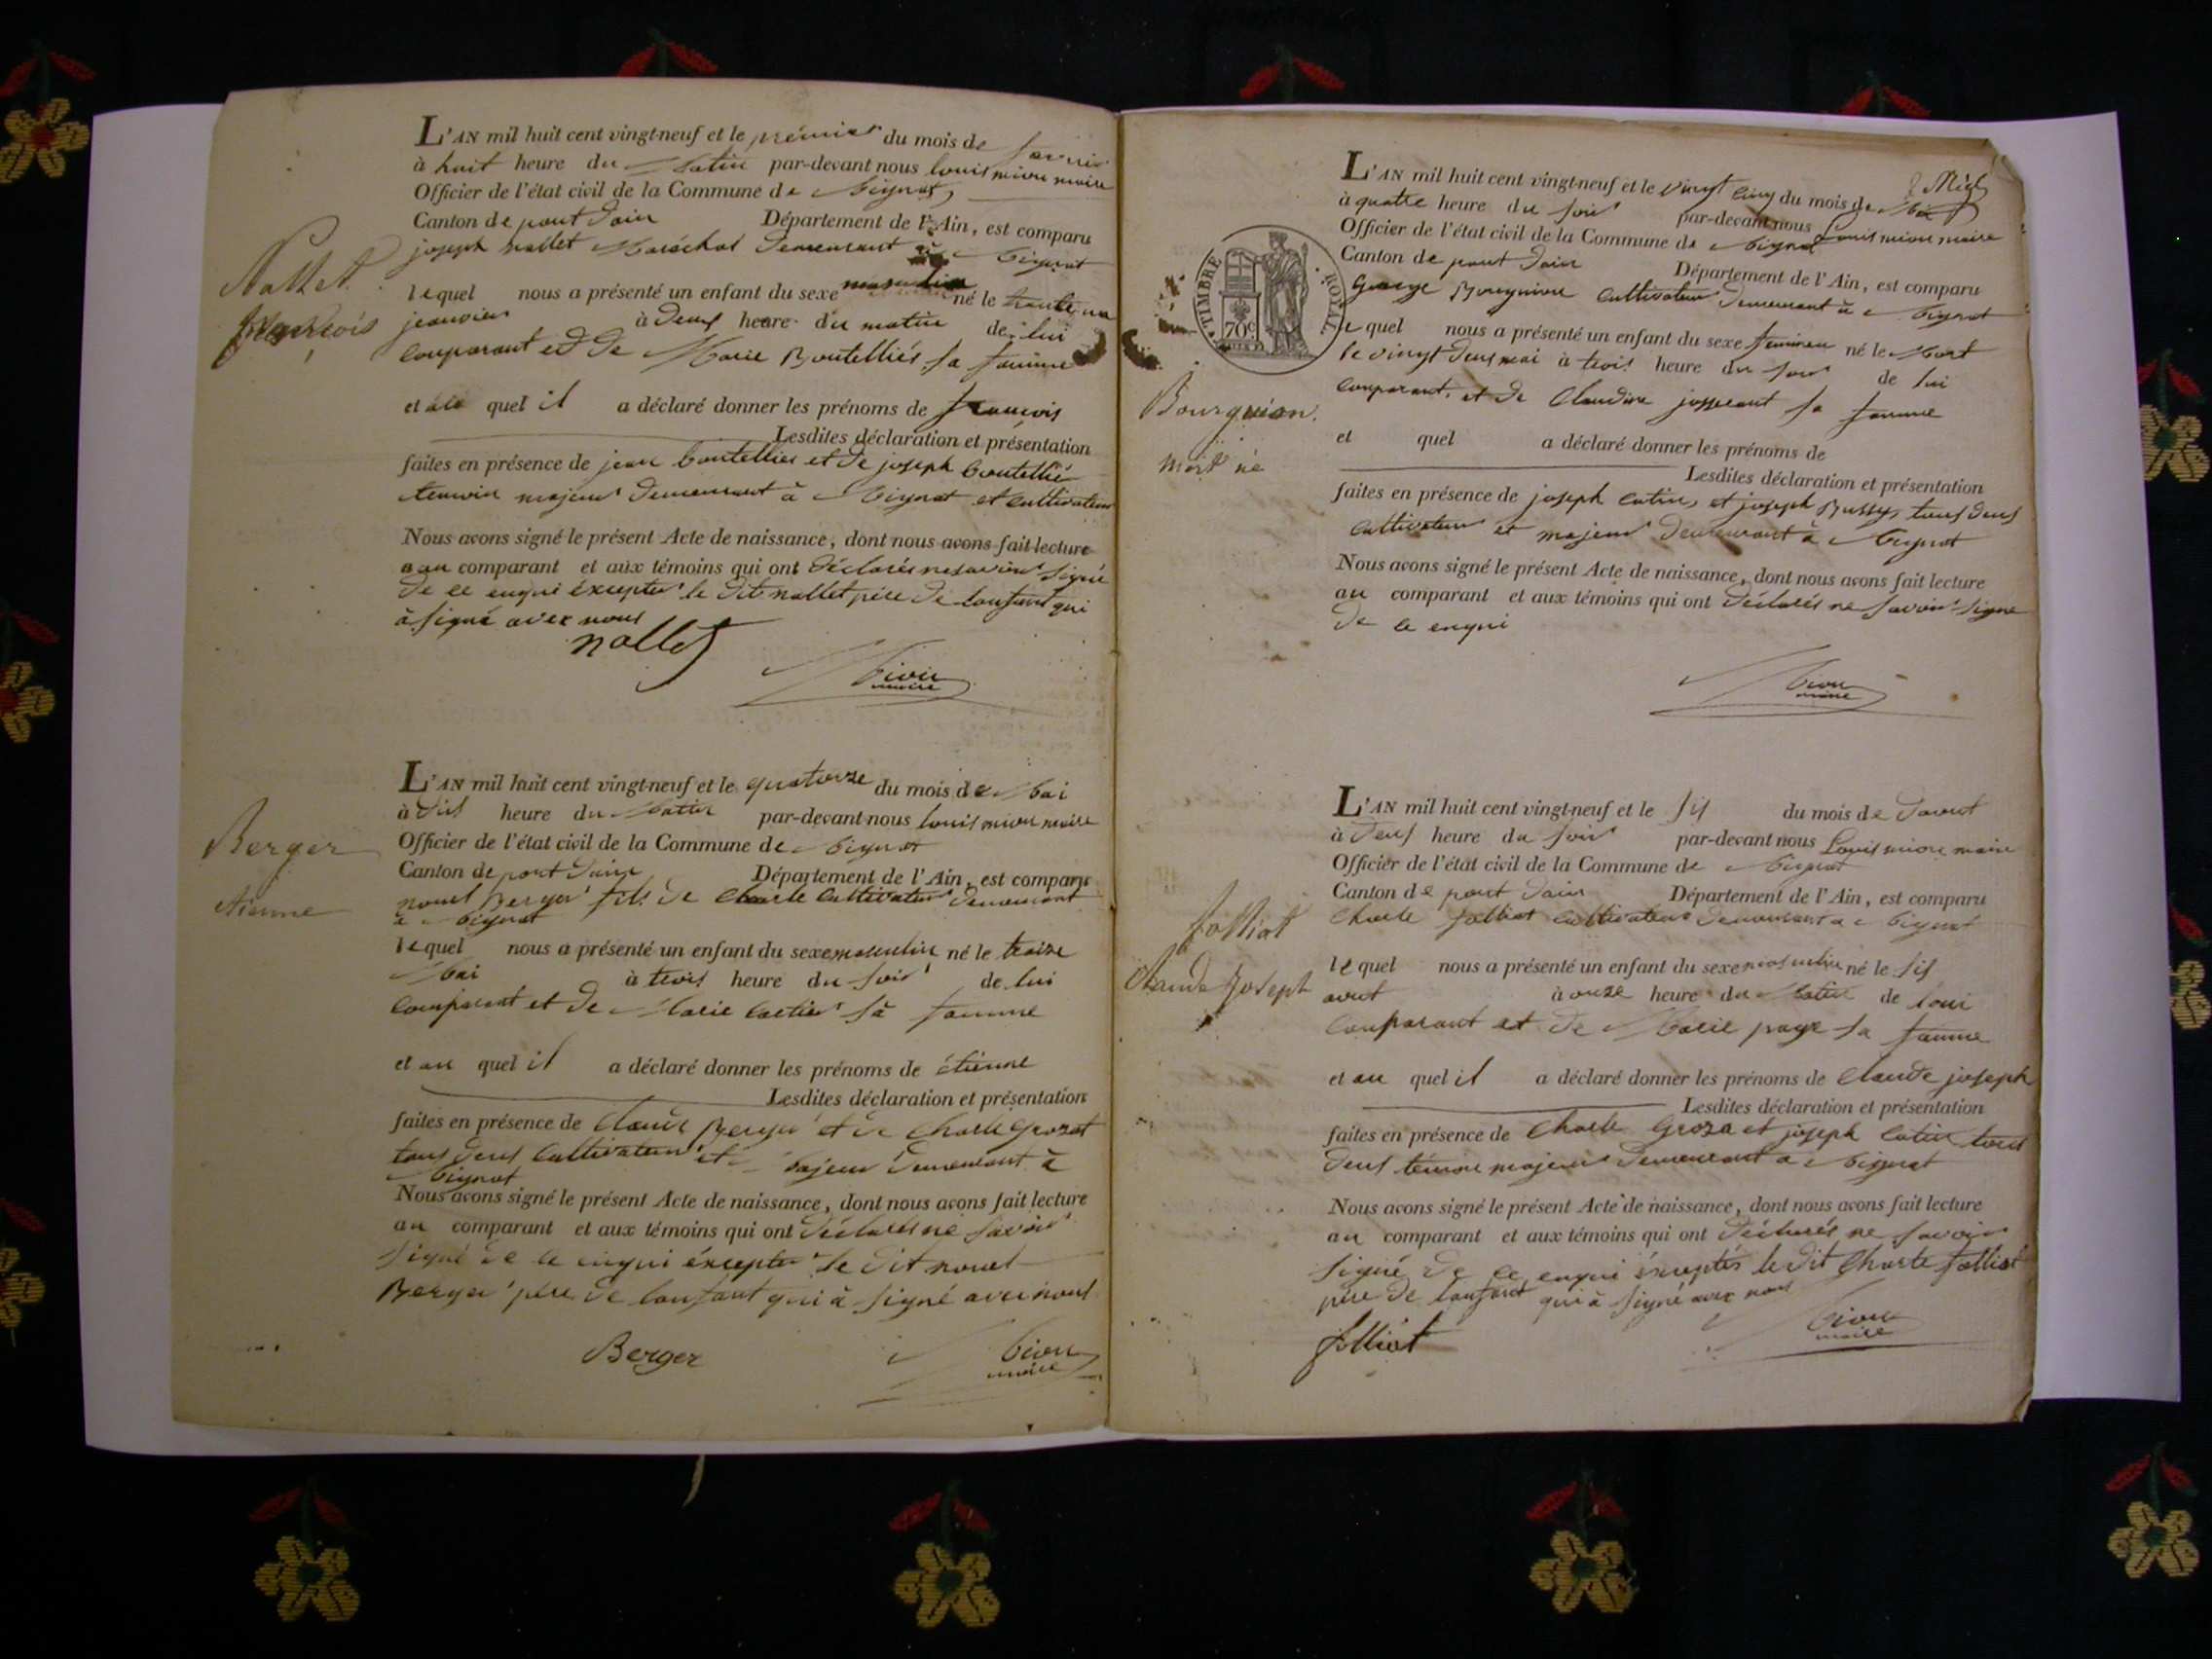 L'AN mil huit cent vingt-neuf et le prémier du mois de
à huit heure du Matin par-devant nous louis miou maire
Officier de l'état civil de la Commune de Mignat
Canton de pont dain Département de l'Ain, est comparu
joseph nallet Maréchal demeurant à Mignat
Nallet
françois
lequel nous a présenté un enfant du sexe masculin né le trente un
jeanvier à deux heure du matin de lui
comparant et de Marie Boutelliés sa famme
et au quel il a déclaré donner les prénoms de francois
Lesdites déclaration et présentation
faites en présence de jean boutellier et de joseph boutellié
temoin majeur demeurant à Mignat et cultivateur
Nous avons signé le présent Acte de naissance, dont nous avons fait lecture
au comparant et aux témoins qui ont déclarés ne savoir signé
de ce enqui éxcepter le dit nallet père de lenfant qui
à signé avec nous
nallet
Miou
maire
L'AN mil huit cent vingt-neuf et le quatorze du mois de Mai
à dix heure du Matin par-devant nous louis miou maire
Officier de l'état civil de la Commune de Mignat
Canton de pont dain Département de l'Ain, est comparu
Berger
étienne
nouel Berger fils de Charle Cultivateur demeurant
à Mignat
lequel nous a présenté un enfant du sexe masculin né le traize
Mai à trois heure du soir de lui
comparant et de Marie Cartier sa famme
et au quel il a déclaré donner les prénoms de étienne
Lesdites déclaration et présentation
faites en présence de Claude Berger et de Charle Grozat
tous deux Cultivateur et Majeur demeurant à
Mignat
Nous avons signé le présent Acte de naissance, dont nous avons fait lecture
au comparant et aux témoins qui ont déclarés ne savoir
signé de ce enqui éxcepter le dit nouel
Berger père de lenfant qui à signé avec nous
Berger
Miou
maire
L'AN mil huit cent vingt-neuf et le vingt cinq du mois de Mai
à quatre heure du soir par-devant nous Louis miou maire
Officier de l'état civil de la Commune de Mignat
Canton de pont dain Département de l'Ain, est comparu
George Bourguion Cultivateur demeurant à Mignat
TIMBRE ROYAL
70c
le quel nous a présenté un enfant du sexe féminin né le Mort
le vingt deux mai à trois heure du soir de lui
comparant et de Claudine josserant sa famme
Bourguion
mort né
et quel a déclaré donner les prénoms de
Lesdites déclaration et présentation
faites en présence de joseph Catin et joseph Bussy tous deux
cultivateur et majeur demeurant à Mignat
Nous avons signé le présent Acte de naissance, dont nous avons fait lecture
au comparant et aux témoins qui ont déclarés ne savoir signé
de ce enqui
Miou
maire
L'AN mil huit cent vingt-neuf et le six du mois de daout
à deux heure du soir par-devant nous Louis miou maire
Officier de l'état civil de la Commune de Mignat
Canton de pont dain Département de l'Ain, est comparu
Charle folliat cultivateur demeurant à Mignat
folliat
Claude Joseph
le quel nous a présenté un enfant du sexe masculin né le six
aout à onze heure du Matin de loui
Comparant et de Marie page sa famme
et au quel il a déclaré donner les prénoms de Claude joseph
Lesdites déclaration et présentation
faites en présence de Charle Groza et joseph Catin tous
deux témoin majeur demeurant à Mignat
Nous avons signé le présent Acte de naissance, dont nous avons fait lecture
au comparant et aux témoins qui ont déclarés ne savoir
signé de ce enqui éxceptés le dit Charle folliat
père de lenfant qui à signé avec nous
folliat
Miou
maire